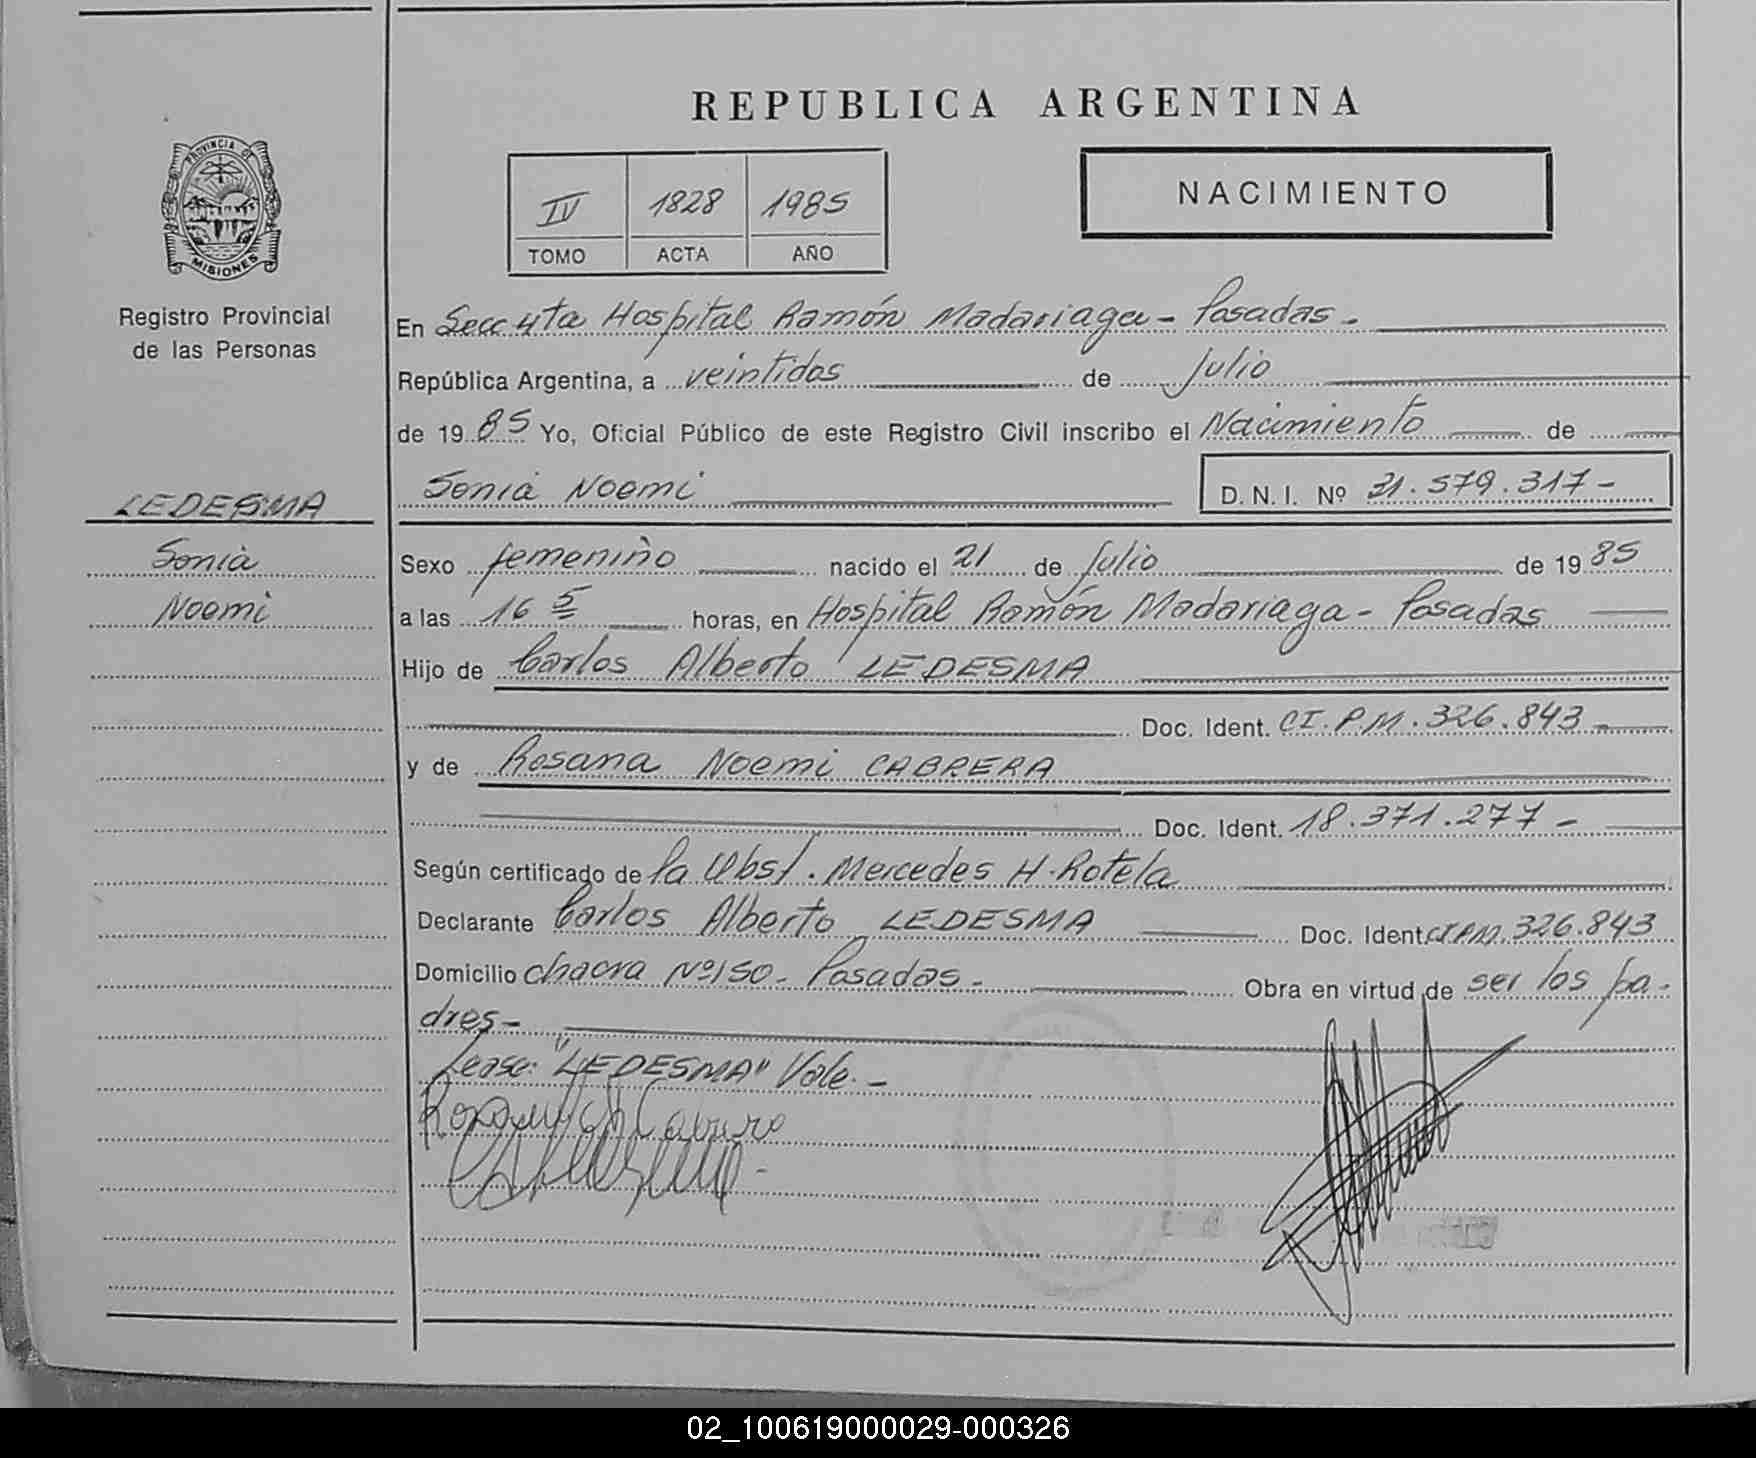 REPUBLICA ARGENTINA
PROVINCIA DE
MISIONES
Registro Provincial
de las Personas
IV 1828 1985
TOMO ACTA AÑO
NACIMIENTO
En Secc 4ta Hospital Ramón Madariaga - Posadas -
República Argentina, a veintidos de Julio
de 1985 Yo, Oficial Público de este Registro Civil inscribo el Nacimiento de
LEDESMA
Sonia
Noemi
Sonia Noemi D. N. I. Nº 31.579.317-
Sexo femenino nacido el 21 de Julio de 1985
a las 16 5 horas, en Hospital Ramón Madariaga - Posadas
Hijo de Carlos Alberto LEDESMA
Doc. Ident. CI. P.M. 326.843-
y de Rosana Noemi CABRERA
Doc. Ident. 18.371.277-
Según certificado de la Obst. Mercedes H. Rotela
Declarante Carlos Alberto LEDESMA Doc. Ident CI PM. 326.843
Domicilio chacra Nº 150 - Posadas - Obra en virtud de ser los pa-
dres-
Lease: "LEDESMA" Vale. -
02_100619000029-000326